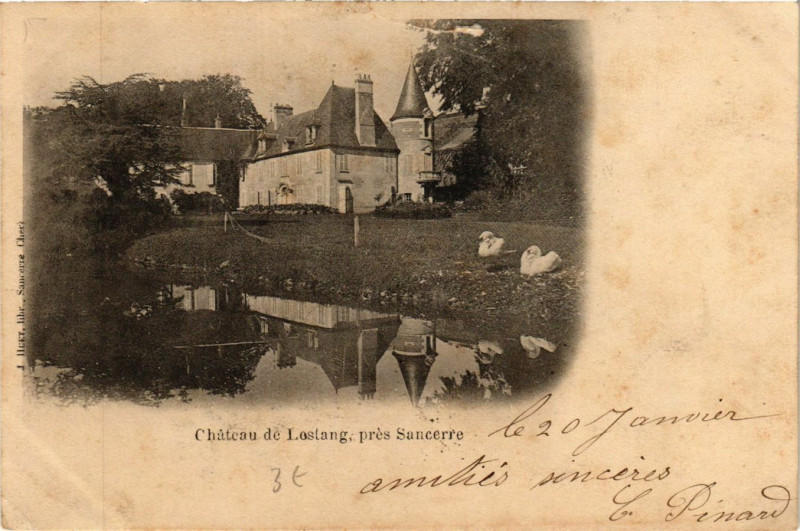 Château de Lestang, près Sancerre
le 20 Janvier
amitiés sincères
C. Pinard
3€
J. HUET, libr., Sancerre (Cher)